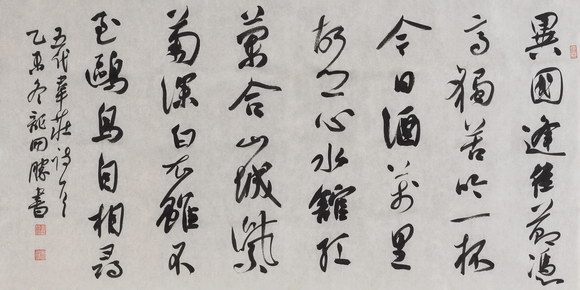 異國逢佳節憑
高獨苦吟一杯
今日酒萬里
故鄉心水館紅
蘭合山城紫
菊深白衣雖不
至鷗鳥自相尋
五代韋莊詩一首
乙冬龍開勝書